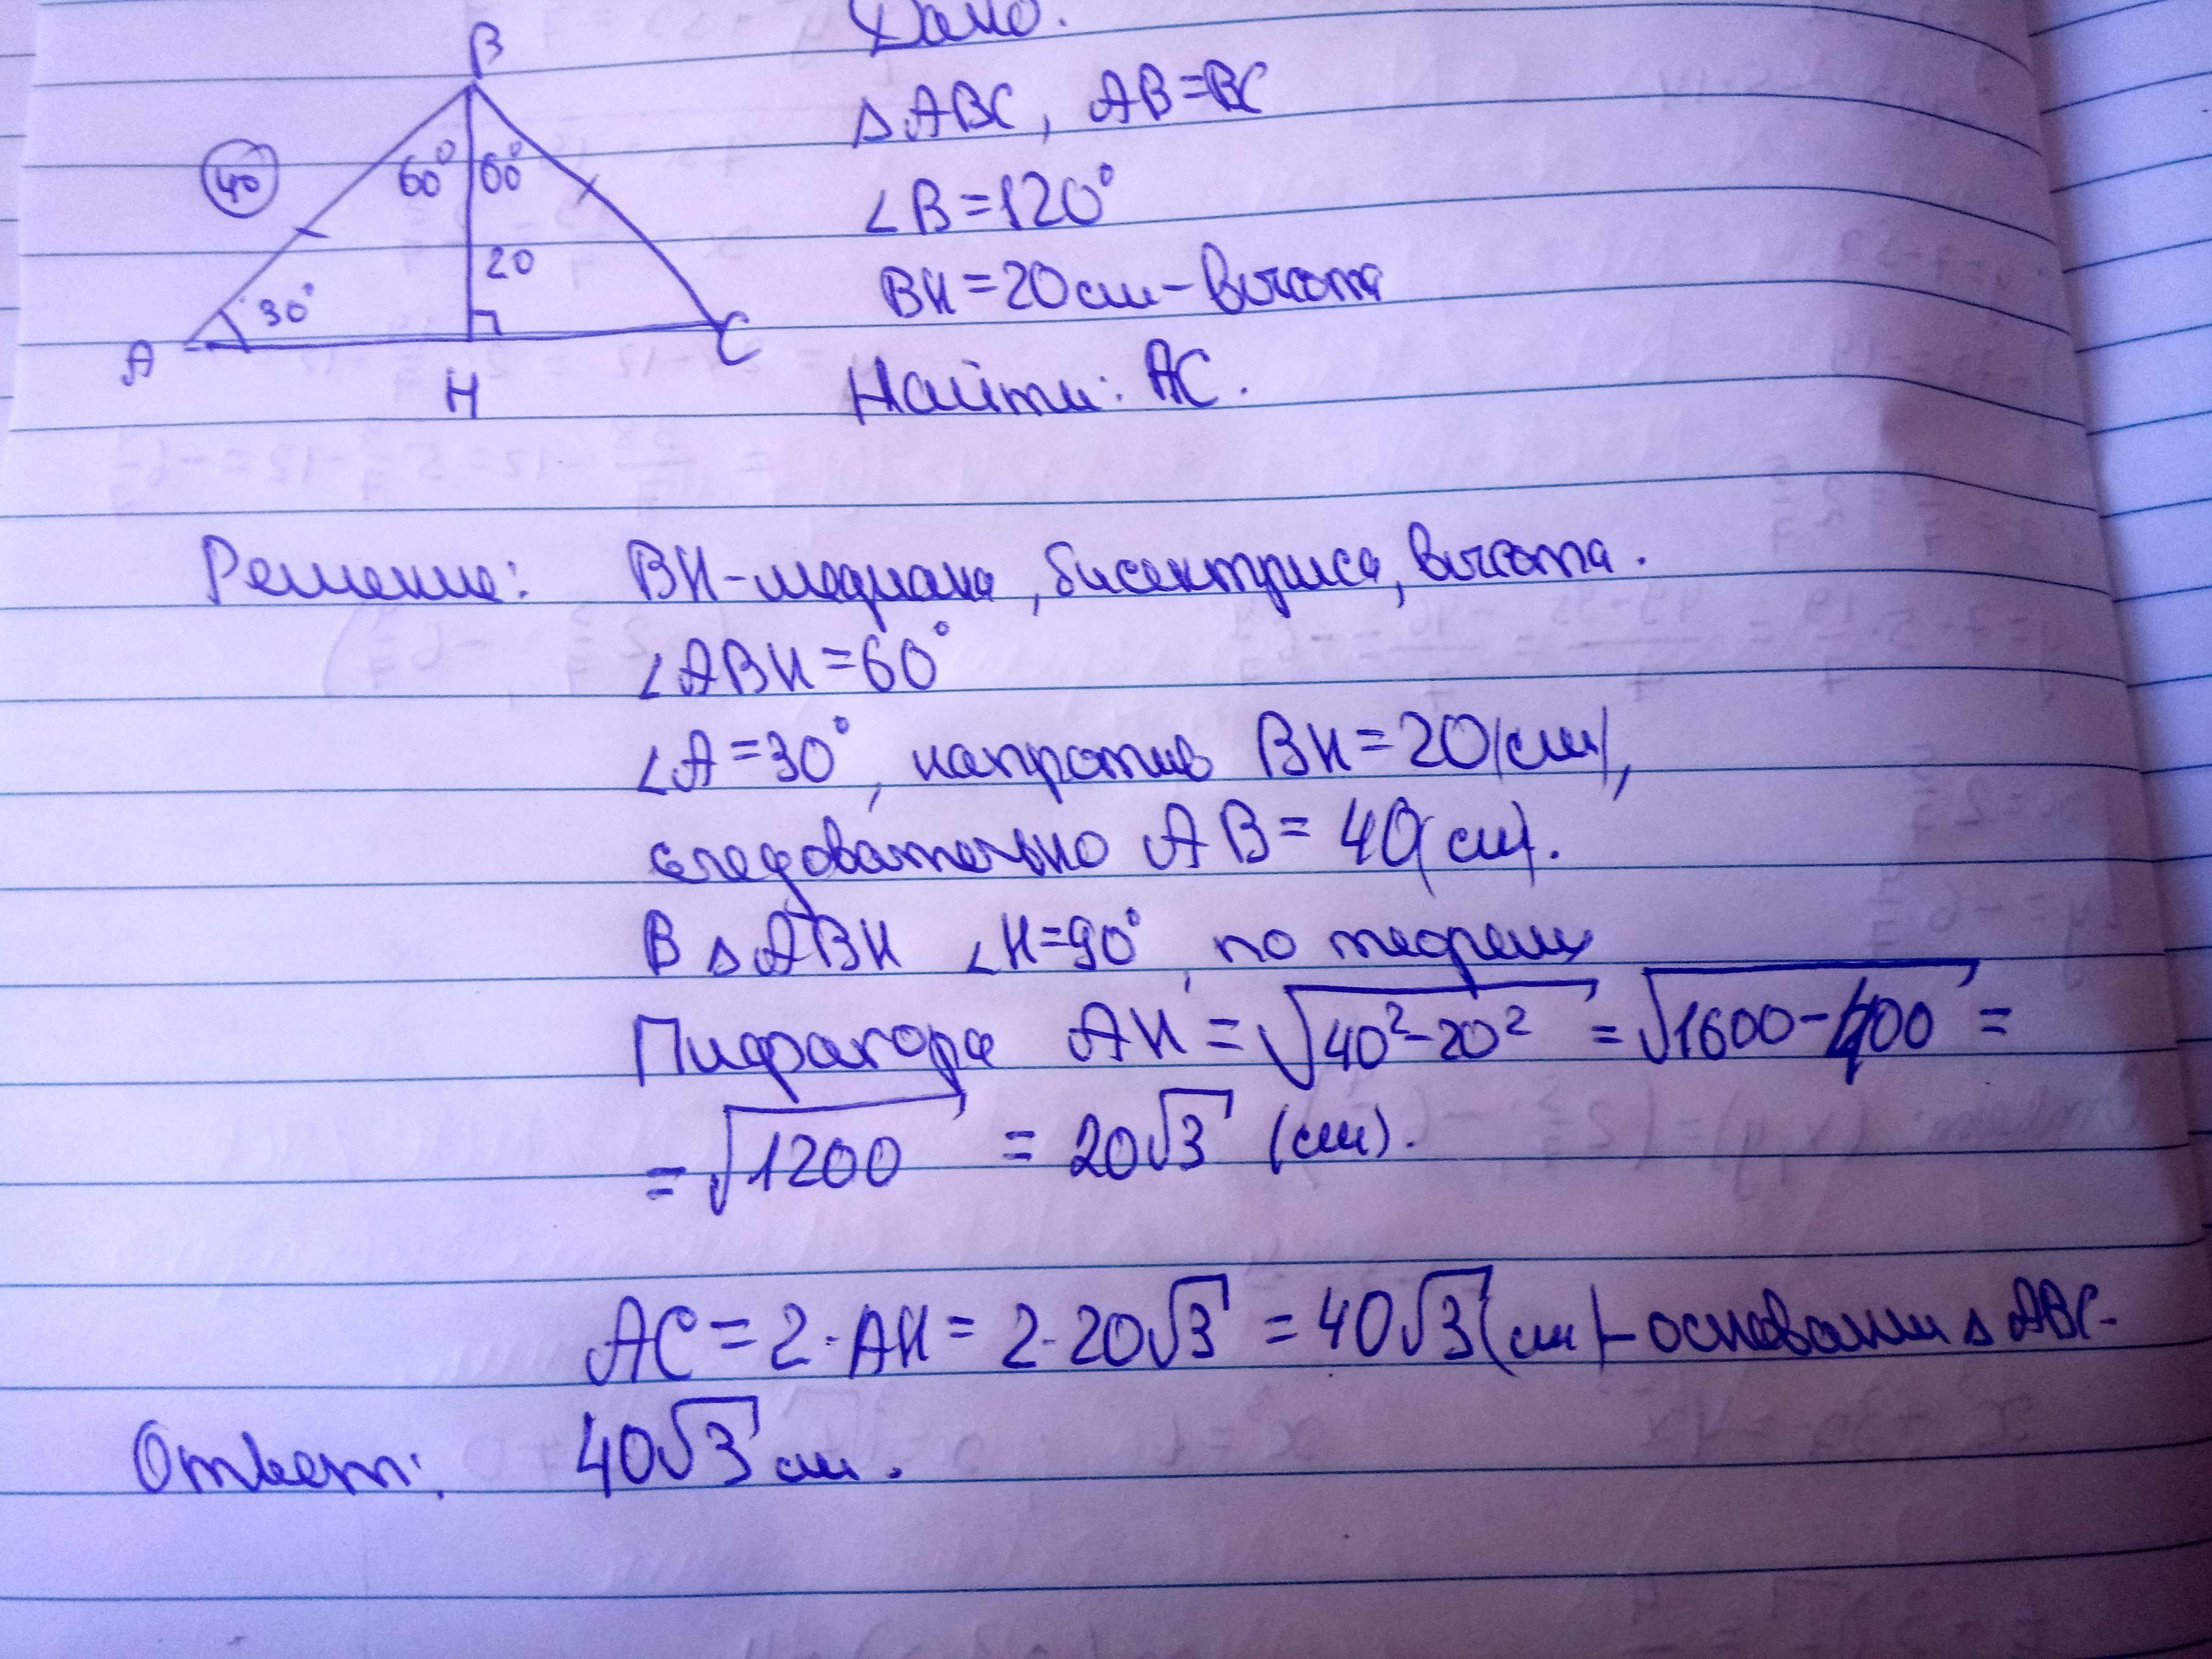 Дано:
B
△ABC, AB=BC
40
60° 60°
∠B=120°
20
BH=20см-высота
30°
A
C
H
Найти: AC.
Решение: BH-медиана, бисектриса, высота.
∠ABH=60°
∠A=30°, напротив BH=20(см),
следовательно AB=40(см).
В △ABH ∠H=90°, по теореме
Пифагора AH=√40²-20² =√1600-400 =
=√1200 = 20√3 (см).
AC=2·AH=2·20√3=40√3(см)-основании △ABC.
Ответ: 40√3 см.